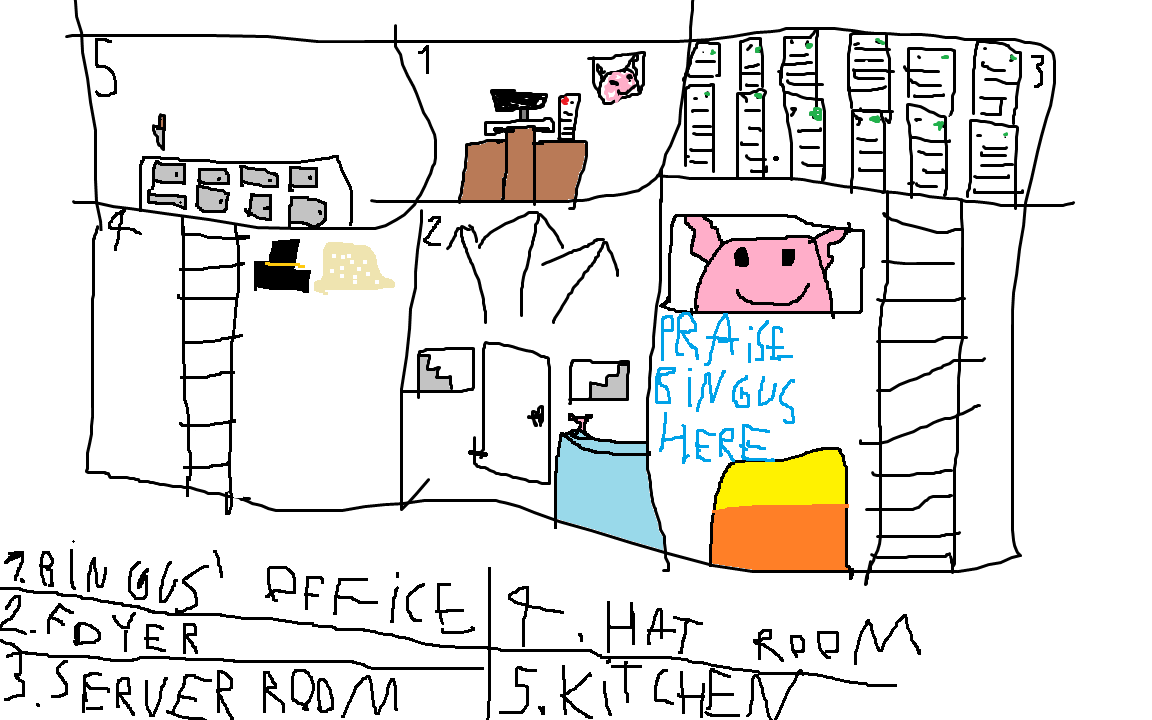 5
1
3
4
2
PRAiSE
BiNGUS
HERE
1. BiNGUS' OFFiCE
2. FOYER
3. SERVER ROOM
4. HAT ROOM
5. KiTCHEN